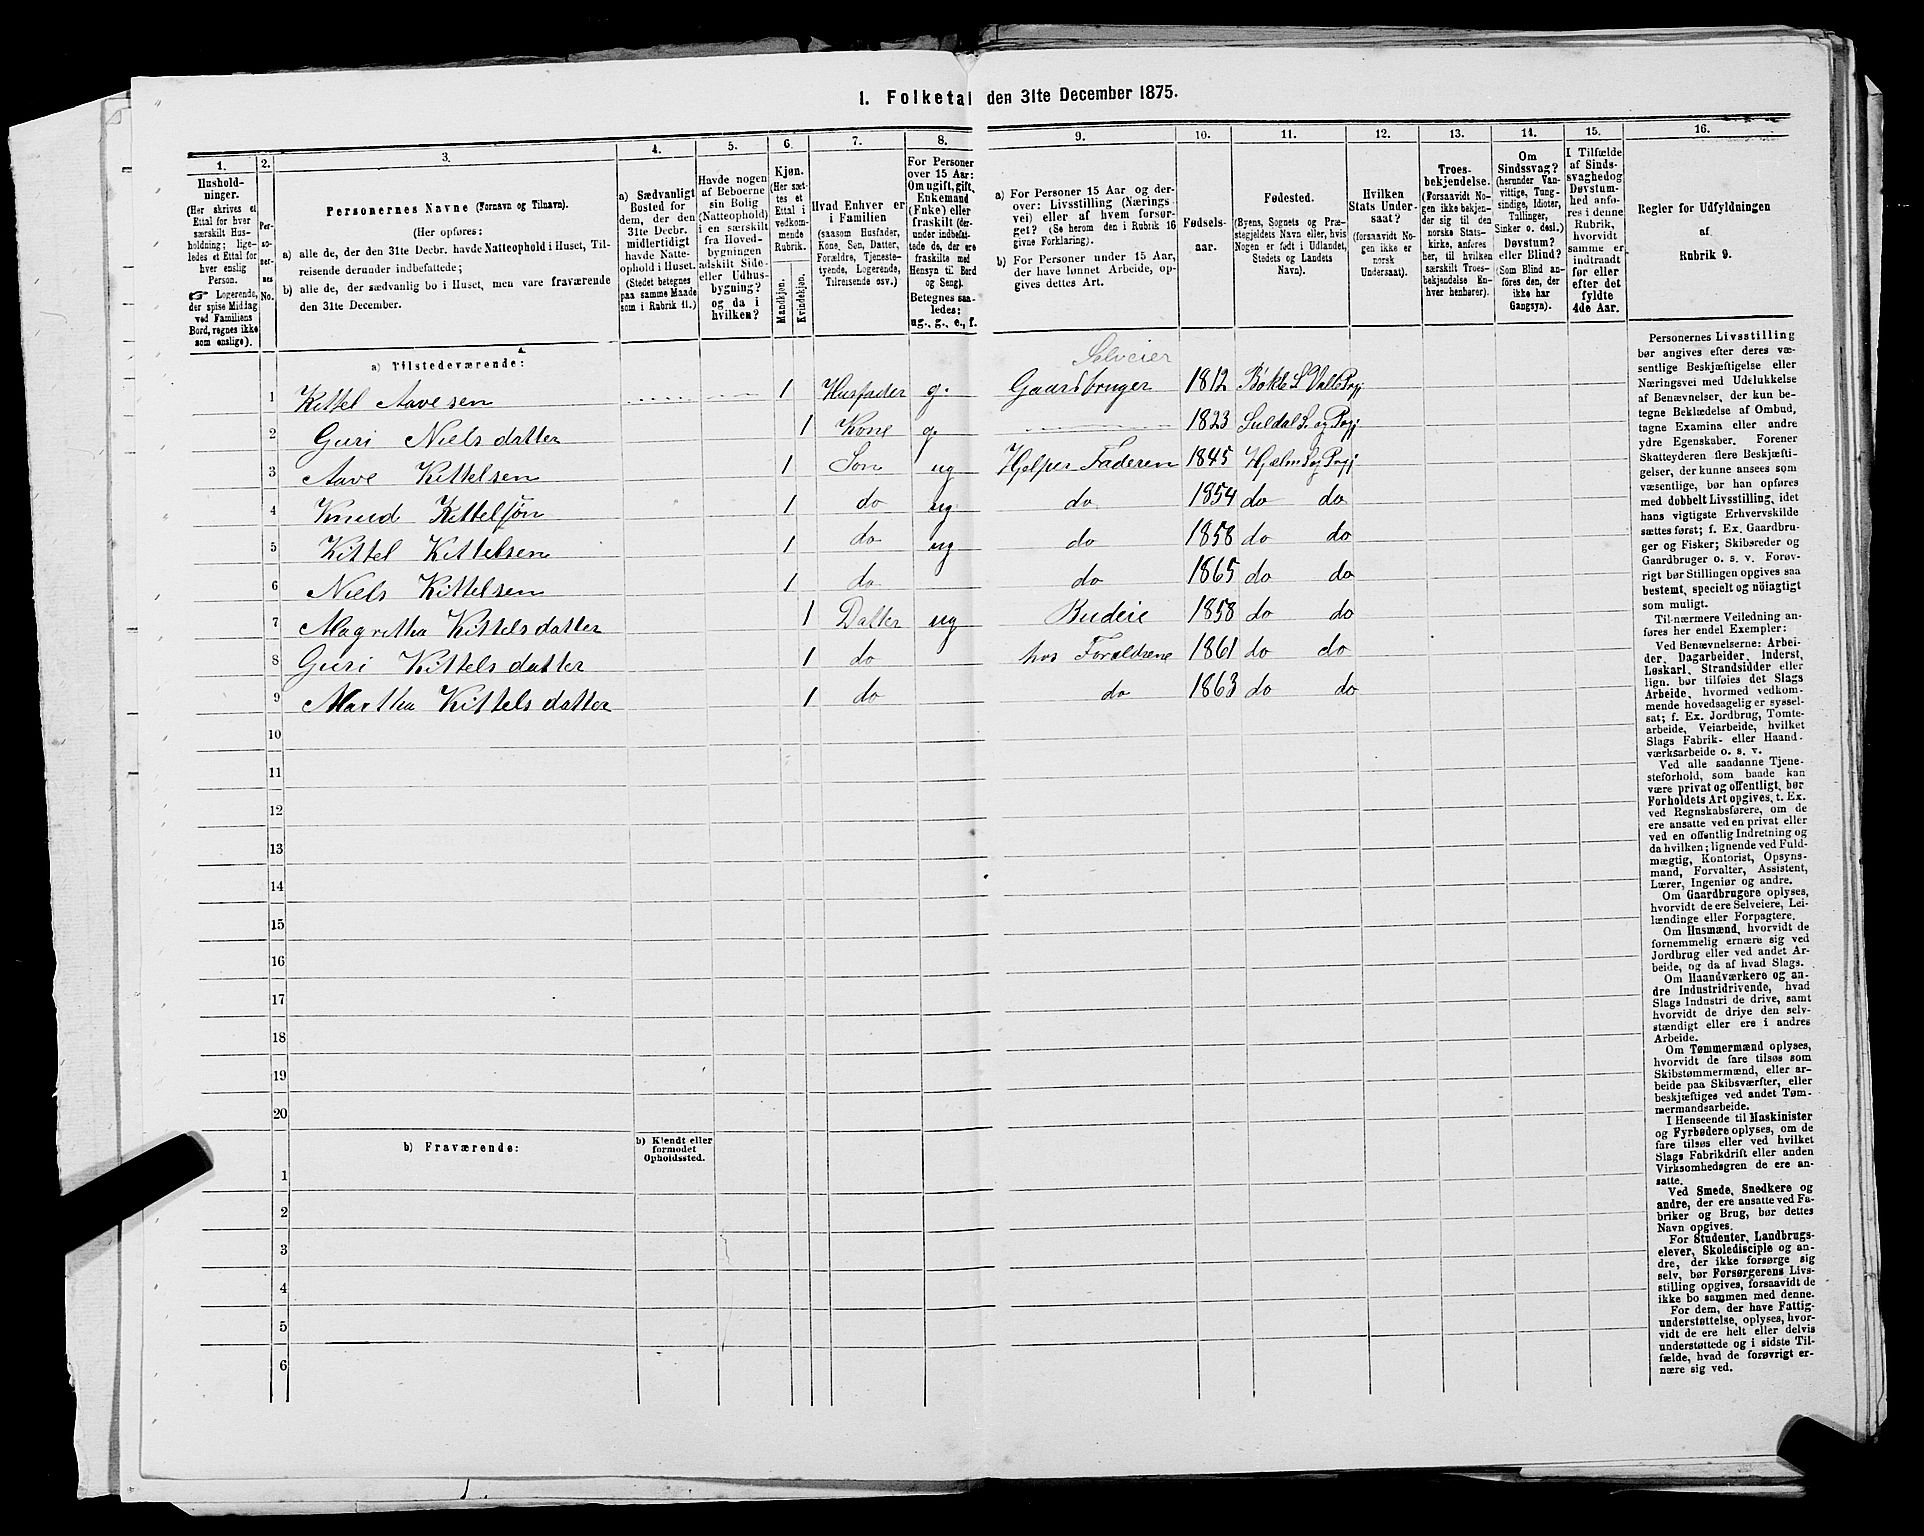 1. Folketal den 31te December 1875.
1.
Hushold-
ninger.
(Her skrives et
Ettal for hver
særskilt Hus-
holdning; lige-
ledes et Ettal for
hver enslig
Person.
☞ Logerende,
der spise Middag
ved Familiens
Bord, regnes ikke
som enslige).
2.
Per-
so-
ner-
nes
No.
3.
Personernes Navne (Fornavn og Tilnavn).
(Her opføres:
a) alle de, der den 31te Decbr. havde Natteophold i Huset, Til-
reisende derunder indbefattede;
b) alle de, der sædvanlig bo i Huset, men vare fraværende
den 31te December.
4.
a) Sædvanligt
Bosted for
dem, der den
31te Decbr.
midlertidigt
havde Natte-
ophold i Huset.
(Stedet betegnes
paa samme Maade
som i Rubrik 11.)
5.
Havde nogen
af Beboerne
sin Bolig
(Natteophold)
i en særskilt
fra Hoved-
bygningen
adskilt Side-
eller Udhus-
bygning?
og da i
hvilken?
6.
Kjøn.
(Her sæt-
tes et
Ettal i
vedkom-
mende
Rubrik.
Mandkjøn.
Kvindekjøn.
7.
Hvad Enhver er
i Familien
(saasom Husfader,
Kone, Søn, Datter,
Forældre, Tjeneste-
tyende, Logerende,
Tilreisende osv.)
8.
For Personer
over 15 Aar:
Om ugift, gift,
Enkemand
(Enke) eller
fraskilt (her-
under indbefat-
tede de, der ere
fraskilte med
Hensyn til Bord
og Seng).
Betegnes saa-
ledes:
ug., g., e., f.
9.
a) For Personer 15 Aar og der-
over: Livsstilling (Nærings-
vei) eller af hvem forsør-
get? (Se herom den i Rubrik 16
givne Forklaring).
b) For Personer under 15 Aar,
der have lønnet Arbeide, op-
gives dettes Art.
10.
Fødsels-
aar.
11.
Fødested.
(Byens, Sognets og Præ-
stegjeldets Navn eller, hvis
Nogen er født i Udlandet,
Stedets og Landets
Navn).
12.
Hvilken
Stats Under-
saat?
(forsaavidt No-
gen ikke er
norsk
Undersaat).
13.
Troes-
bekjendelse.
(Forsaavidt No-
gen ikke bekjen-
der sig til den
norske Stats-
kirke, anføres
her, til hvilken
særskilt Troes-
bekjendelse En-
hver henhører).
14.
Om
Sindssvag?
(herunder Van-
vittige, Tung-
sindige, Idioter,
Tullinger,
Sinker o. desl.)
Døvstum?
eller Blind?
(Som Blind an-
føres den, der
ikke har
Gangsyn).
15.
I Tilfælde
af Sinds-
svaghed og
Døvstum-
hed anfø-
res i denne
Rubrik,
hvorvidt
samme er
indtraadt
før eller
efter det
fyldte
4de Aar.
16.
Regler for Udfyldningen
af
Rubrik 9.
a) Tilstedeværende:
Selveier
1 Kittel Aavesen 1 Husfader g. Gaardbruger 1812 Bøkle S Valle Pgj
2 Guri Nielsdatter 1 Kone g. 1823 Suldal S. og Pgj
3 Aave Kittelsen 1 Søn ug Hjelper Faderen 1845 Hjelm S og Pgj
4 Knud Kittelsøn 1 do ug do 1854 do do
5 Kittel Kittelsen 1 do ug do 1858 do do
6 Niels Kittelsen 1 do do 1865 do do
7 Magretha Kittelsdatter 1 Datter ug Budeie 1858 do do
8 Guri Kittelsdatter 1 do hos Forældrene 1861 do do
9 Martha Kittelsdatter 1 do do 1863 do do
10
11
12
13
14
15
16
17
18
19
20
b) Fraværende:
b) Kjendt eller
formodet
Opholdssted.
1
2
3
4
5
6
Personernes Livsstilling
bør angives efter deres væ-
sentlige Beskjæftigelse eller
Næringsvei med Udelukkelse
af Benævnelser, der kun be-
tegne Beklædelse af Ombud,
tagne Examina eller andre
ydre Egenskaber. Forener
Skatteyderen flere Beskjæfti-
gelser, der kunne ansees som
væsentlige, bør han opføres
med dobbelt Livsstilling, idet
hans vigtigste Erhvervskilde
sættes først; f. Ex. Gaardbru-
ger og Fisker; Skibsreder og
Gaardbruger o. s. v. Forøv-
rigt bør Stillingen opgives saa
bestemt, specielt og nöiagtigt
som muligt.
Til nærmere Veiledning an-
føres her endel Exempler:
Ved Benævnelserne: Arbei-
der, Dagarbeider, Inderst,
Løskarl, Strandsidder eller
lign. bør tilføies det Slags
Arbeide, hvormed vedkom-
mende hovedsagelig er syssel-
sat; f. Ex. Jordbrug, Tomte-
arbeide, Veiarbeide, hvilket
Slags Fabrik- eller Haand-
værksarbeide o. s. v.
Ved alle saadanne Tjene-
steforhold, som baade kan
være privat og offentligt, bør
Forholdets Art opgives, t. Ex.
ved Regnskabsførere, om de
ere ansatte ved en privat eller
ved en offentlig Indretning og
da hvilken; lignende ved Fuld-
mægtig, Kontorist, Opsyns-
mand, Forvalter, Assistent,
Lærer, Ingeniør og andre.
Om Gaardbrugere oplyses,
hvorvidt de ere Selveiere, Lei-
lændinge eller Forpagtere.
Om Husmænd, hvorvidt de
fornemmelig ernære sig ved
Jordbrug eller ved andet Ar-
beide, og da af hvad Slags.
Om Haandværkere og an-
dre Industridrivende, hvad
Slags Industri de drive, samt
hvorvidt de drive den selv-
stændigt eller ere i andres
Arbeide.
Om Tømmermænd oplyses,
hvorvidt de fare tilsøs som
Skibstømmermænd, eller ar-
beide paa Skibsværfter, eller
beskjæftiges ved andet Tøm-
mermandsarbeide.
I Henseende til Maskinister
og Fyrbødere oplyses, om de
fare tilsøs eller ved hvilket
Slags Fabrikdrift eller anden
Virksomhedsgren de ere an-
satte.
Ved Smede, Snedkere og
andre, der ere ansatte ved Fa-
briker og Brug, bør dettes
Navn opgives.
For Studenter, Landbrugs-
elever, Skoledisciple og an-
dre, der ikke forsørge sig
selv, bør Forsørgerens Livs-
stilling opgives, forsaavidt de
ikke bo sammen med denne.
For dem, der have Fattig-
understøttelse, oplyses, hvor-
vidt de ere helt eller delvis
understøttede og i sidste Til-
fælde, hvad de forøvrigt er-
nære sig ved.